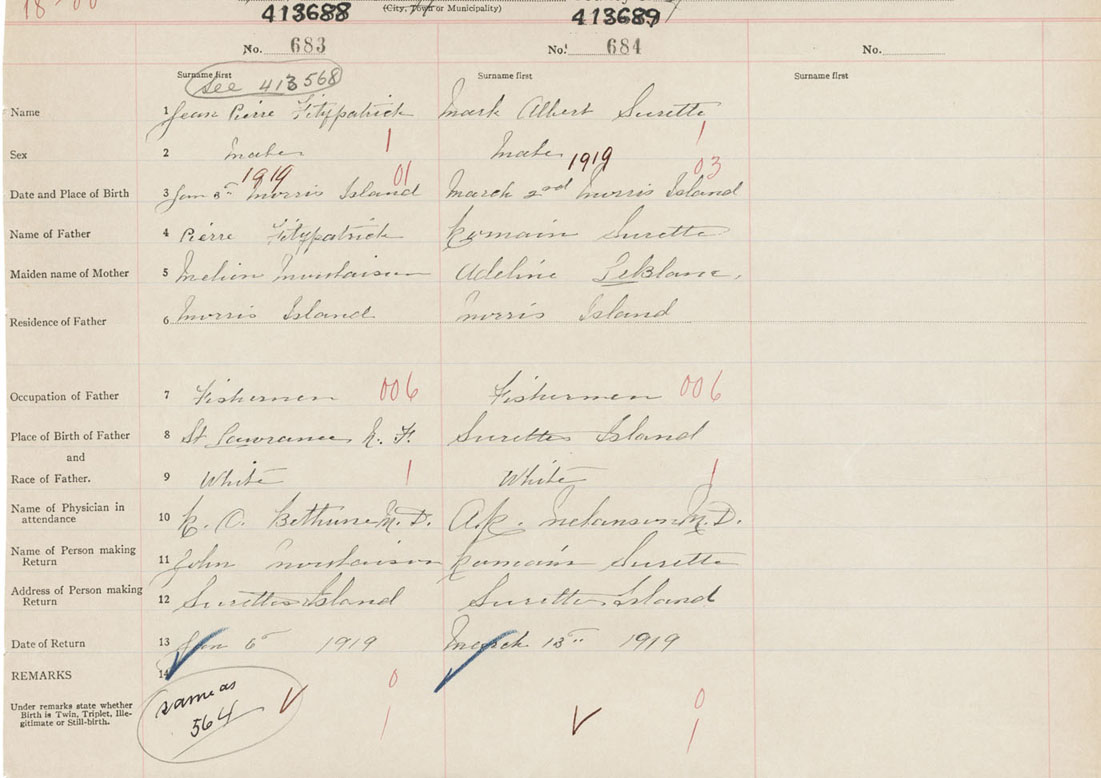 18-00
413688 (City, Town or Municipality) 413689
No. 683 No. 684 No.
Surname first Surname first Surname first
See 413568
Name 1 Jean Pierre Fitzpatrick Mark Albert Surette
Sex 2 Male 1 Male 1
1919 01 1919 03
Date and Place of Birth 3 Jan Morris Island March 2nd Morris Island
Name of Father 4 Pierre Fitzpatrick Romain Surette
Maiden name of Mother 5 Adeline LeBlanc,
Residence of Father 6 Morris Island Morris Island
Occupation of Father 7 Fishermen 006 Fishermen 006
Place of Birth of Father 8 St Lawrance N. F. Surettes Island
and
Race of Father. 9 White 1 White 1
Name of Physician in
attendance 10 Bethune M.D. Melanson M.D.
Name of Person making
Return 11 John Romain Surette
Address of Person making
Return 12 Surettes Island Surettes Island
Date of Return 13 Jan 6th 1919 March 13th 1919
REMARKS 14 0
Under remarks state whether
Birth is Twin, Triplet, Ille-
gitimate or Still-birth.
same as
564
1 0
1